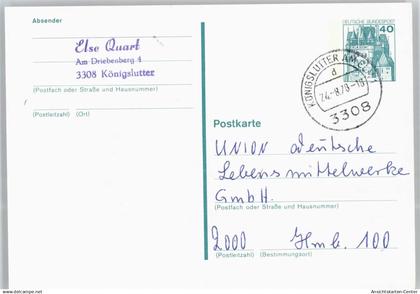 Absender
Else Quart
Am Driebenberg 4
3308 Königslutter
(Postfach oder Straße und Hausnummer)
(Postleitzahl) (Ort)
DEUTSCHE BUNDESPOST
40
KÖNIGSLUTTER AM
a
24.-8.78-18
3308
Postkarte
UNION deutsche
Lebensmittelwerke
GmbH.
(Postfach oder Straße und Hausnummer)
2000 Hmb. 100
(Postleitzahl) (Bestimmungsort)
Ansichtskarten-Center